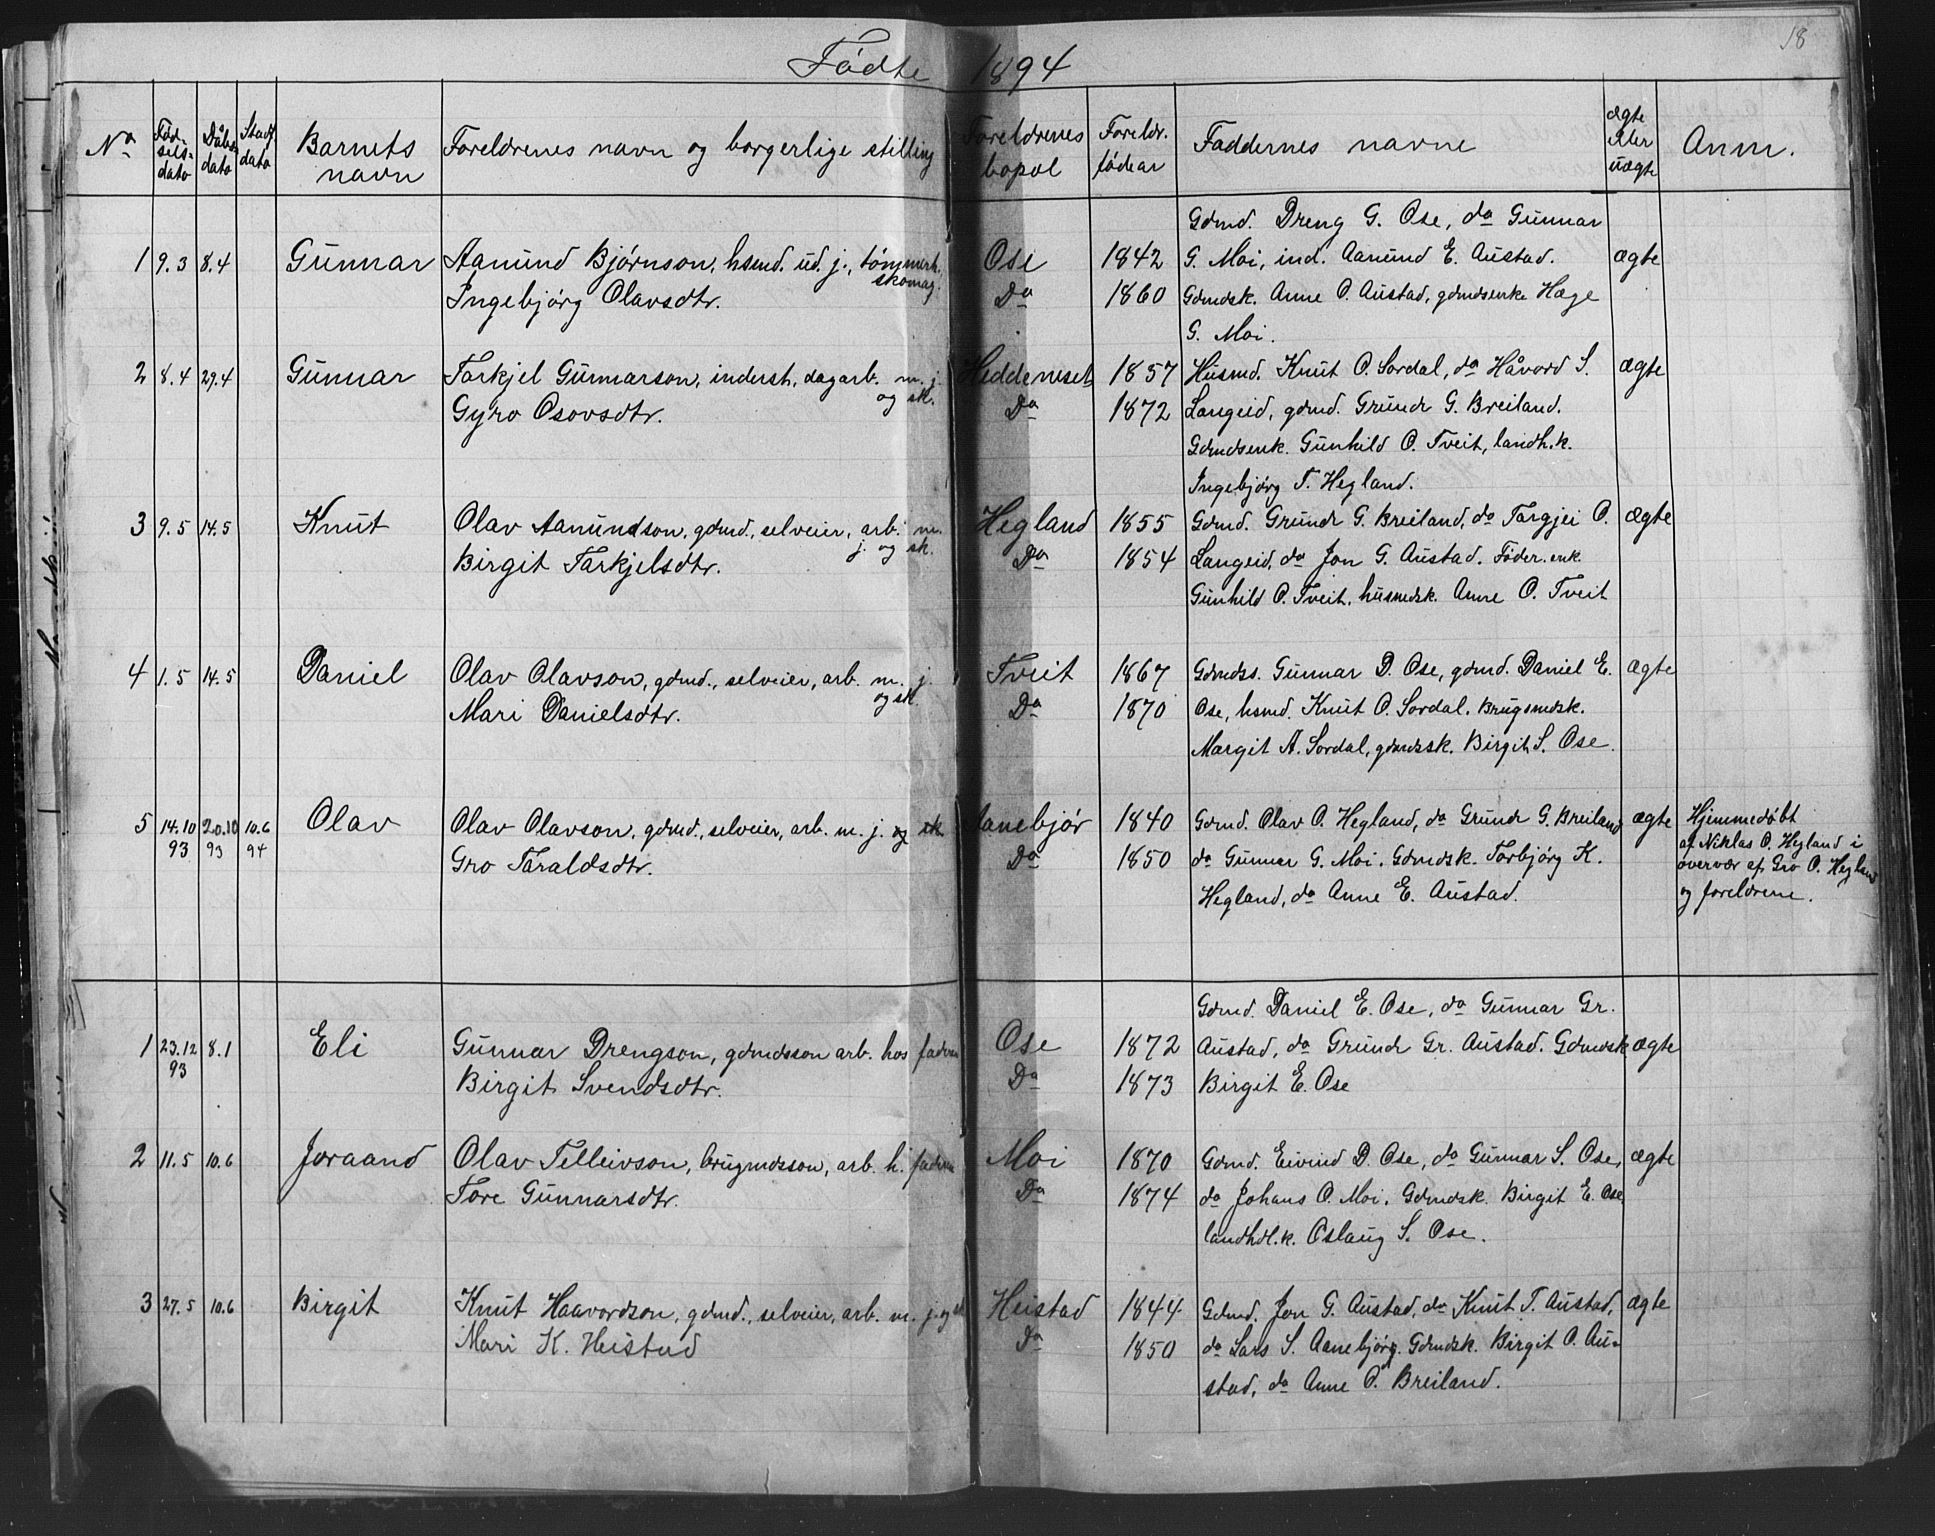 18
Fødte 1894
No Fødselsdato Dåbsdato Stadf. dato Barnets navn Foreldrenes navn og borgerlige stilling Foreldrenes bopæl Foreldr. fødear Faddernes navne ægte eller uægte Anm.
Gdmd. Dreng G. Ose, do Gunnar
1 9.3 8.4 Gunnar Aanund Bjørnson, hsmd. ud. j., tømmerh. Ose 1842 G. Moi, ind. Aanund E. Austad. ægte
skomag.
Ingebjørg Olavsdtr. Do 1860 Gdmdsk. Anne O. Austad, gdmdsenke Hæge
G. Moi.
2 8.4 29.4 Gunnar Tarkjel Gunnarson, inderst, dagarb. m. j. Heddeneset 1857 Husmd. Knut O. Sordal, do Håvord S. ægte
og sk.
Gyro Osovsdtr. Do 1872 Langeid, gdmd. Grundr G. Breiland.
Gdmdsenk. Gunhild O. Tveit, landh.k.
Ingebjørg T. Hegland.
3 9.5 14.5 Knut Olav Aanundson, gdmd., selveier, arb. m. Hegland 1855 Gdmd. Grundr G. Breiland, do Targjei O. ægte
j. og sk.
Birgit Tarkjelsdtr. Do 1854 Langeid, do Jon G. Austad. Føder. enk.
Gunhild O. Tveit, husmdsk. Anne O. Tveit
4 1.5 14.5 Daniel Olav Olavson, gdmd., selveier, arb. m. j. Tveit 1867 Gdmdss. Gunnar D. Ose, gdmd. Daniel E. ægte
og sk.
Mari Danielsdtr. Do 1870 Ose, hsmd. Knut O. Sordal. Brugsmdsk.
Margit A. Sordal, gdmdsk. Birgit S. Ose.
5 14.10 93 20.10 93 10.6 94 Olav Olav Olavson, gdmd., selveier, arb. m. j. og sk. Aanebjør 1840 Gdmd. Olav O. Hegland, do Grundr G. Breiland ægte Hjemmedøbt
af Niklas O. Hegland i
Gro Taraldsdtr. Do 1850 do Gunnar G. Moi. Gdmdsk. Torbjørg K. overvær af Gro O. Hegland
Hegland, do Anne E. Austad. og foreldrene.
Gdmd. Daniel E. Ose, do Gunnar Gr.
1 23.12 93 8.1 Eli Gunnar Drengson, gdmdsson arb. hos faderen Ose 1872 Austad, do Grundr Gr. Austad. Gdmdsk ægte
Birgit Svendsdtr. Do 1873 Birgit E. Ose
2 11.5 10.6 Joraand Olav Tellevson, brugmdsson, arb. h. faderen Moi 1870 Gdmd. Eivind D. Ose, do Gunnar S. Ose, ægte
Tore Gunnarsdtr. Do 1874 do Johans O. Moi. Gdmdsk. Birgit E. Ose
landhdl.k. Oslaug S. Ose.
3 27.5 10.6 Birgit Knut Haavordson, gdmd., selveier, arb. m. j. og sk Heistad 1844 Gdmd. Jon G. Austad, do Knut T. Austad, ægte
Mari K. Heistad Do 1850 do Lars S. Aanebjørg. Gdmdsk. Birgit O. Au-
stad, do Anne O. Breiland.